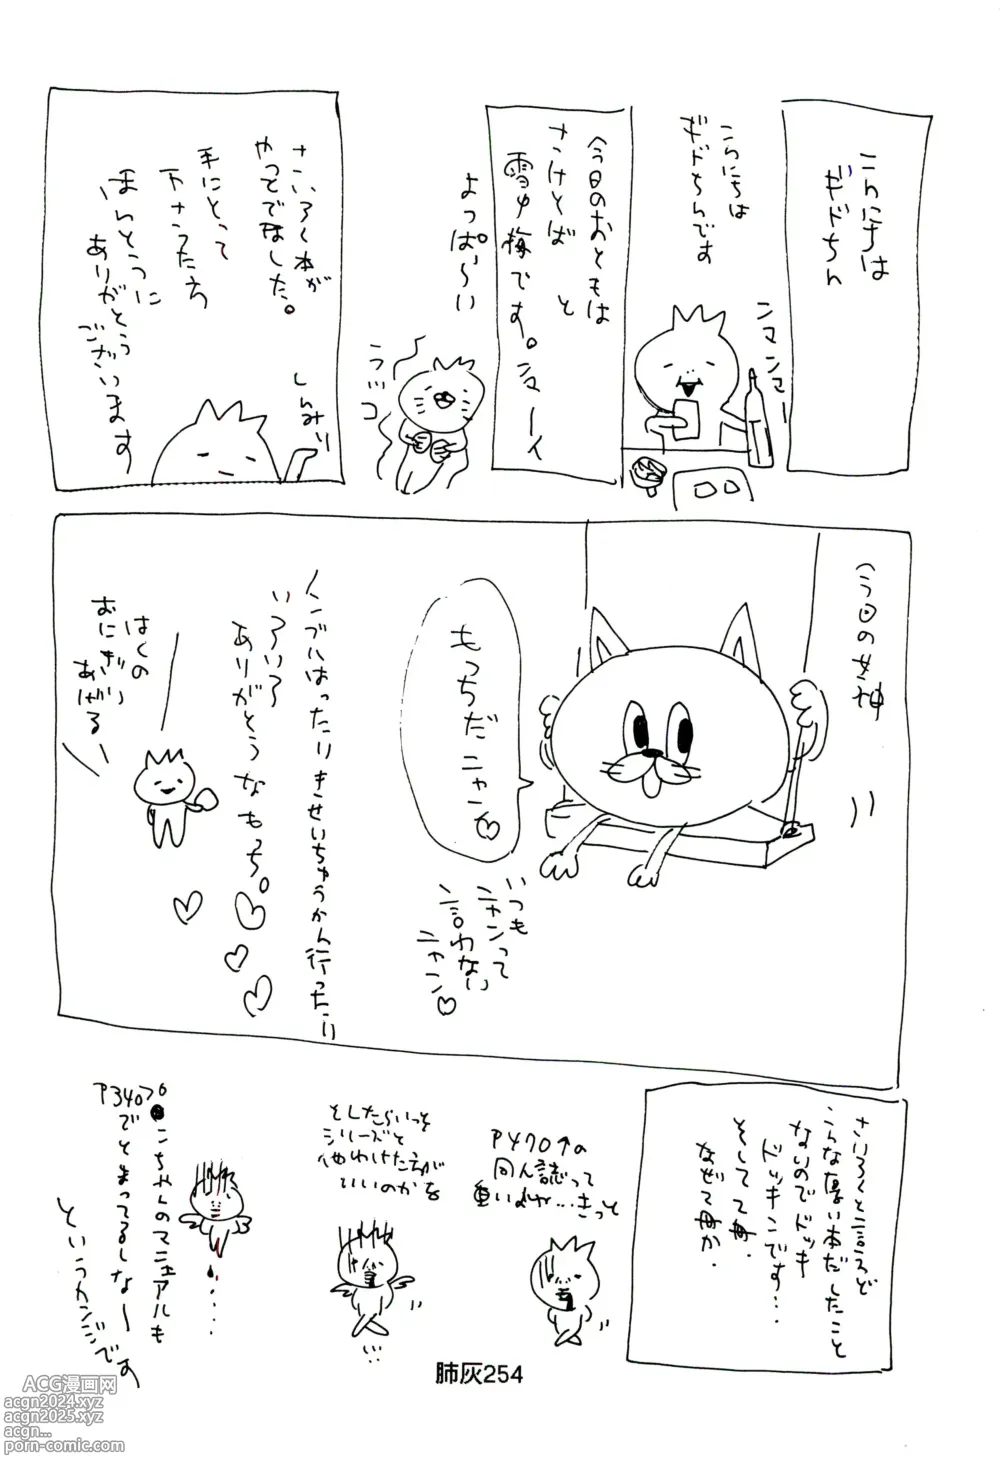 こんにちは
ギドちん
こんにちは
ギドちんです
ンマンマー
今日のおともは
さけとば と
雪中梅です。ンマーイ
よっぱらい
ウッコ
さいろく本が
やっとでました。
手にとって
下さった方
ほんとうに
ありがとう
ございます
しんみり
今日の女神
もっちだニャン♡
いつも
ニャンって
言わない
ニャン♡
はったりきせいちゅうかん行ったり
いろいろ
ありがとうなもっち。
はくの
おにぎり
あげる
さいろくと言えど
こんな厚い本だしたこと
ないのでドッキ
ドッキンです…
そして
なぜ
P470↑の
同人誌って
重いよね…きっと
としたらいっそ
シリーズと
わけた方が
いいのかな
P340
こちゃんのマニュアルも
でとまってるしな〜
というカンジです
肺灰254
ACG漫画网
acgn2024.xyz
acgn2025.xyz
acgn...
porn-comic.com